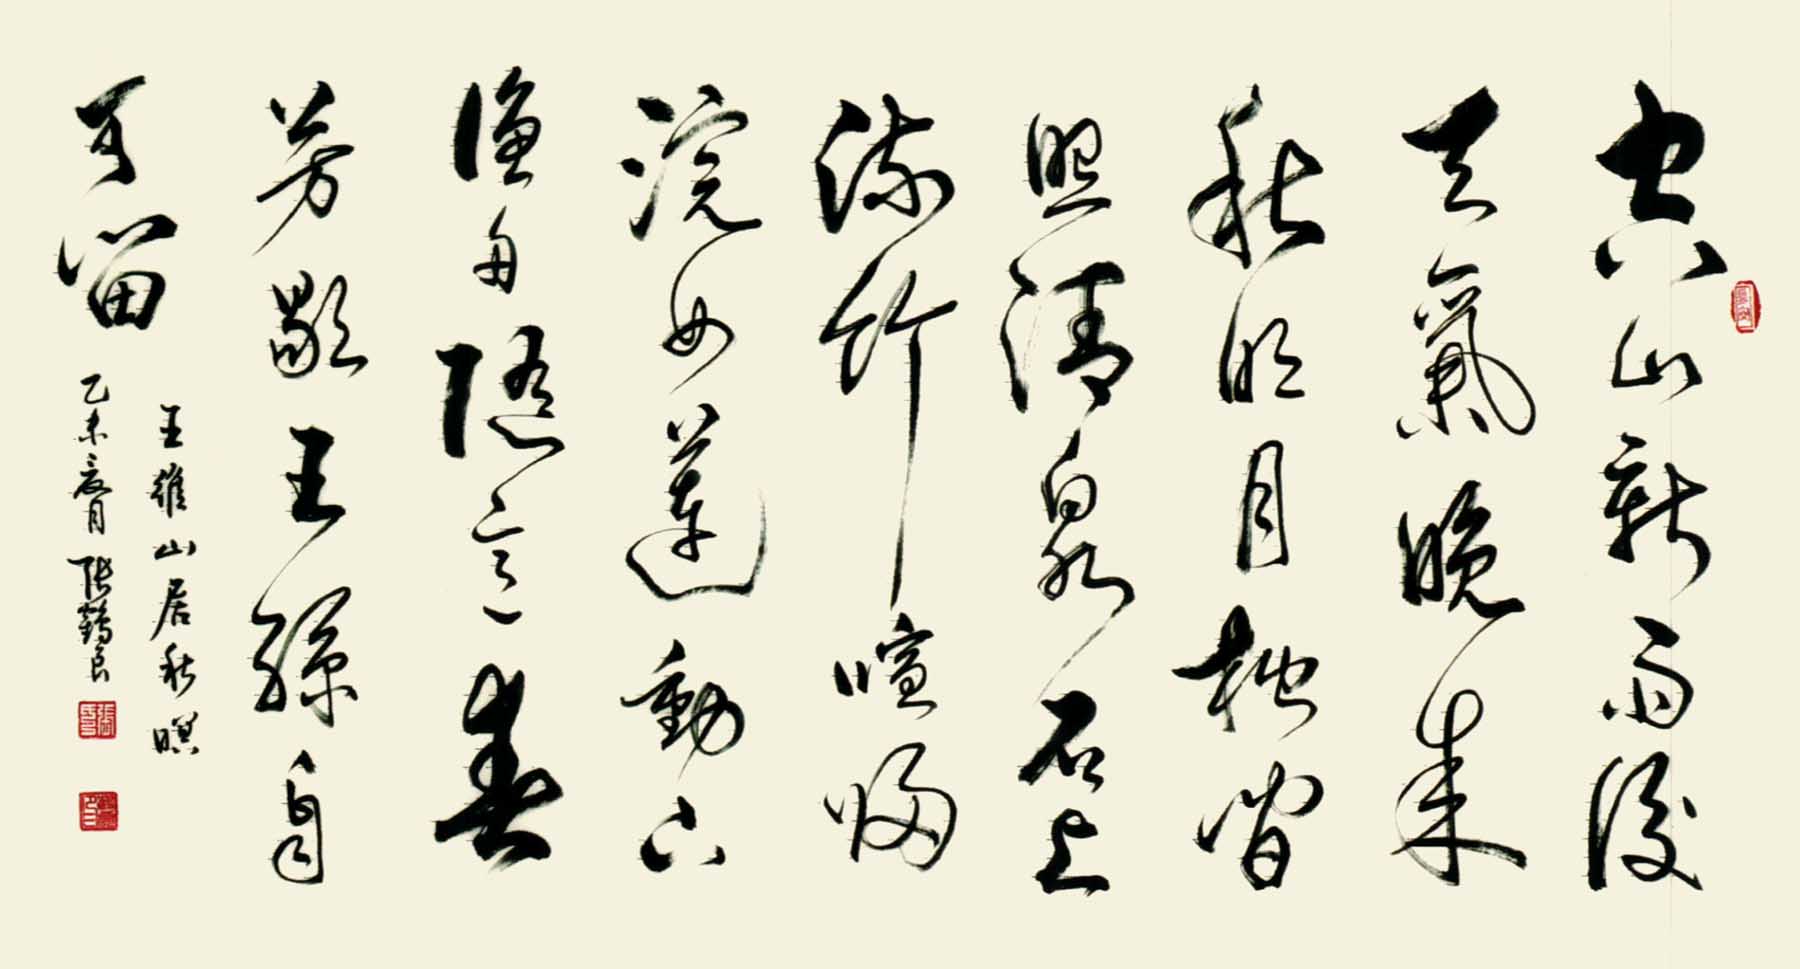 空山新雨後
天氣晚來
秋明月松間
照清泉石上
流竹喧歸
浣女蓮動下
漁舟隨意春
芳歇王孫自
可留
王維山居秋暝
乙未夏月張鶴良